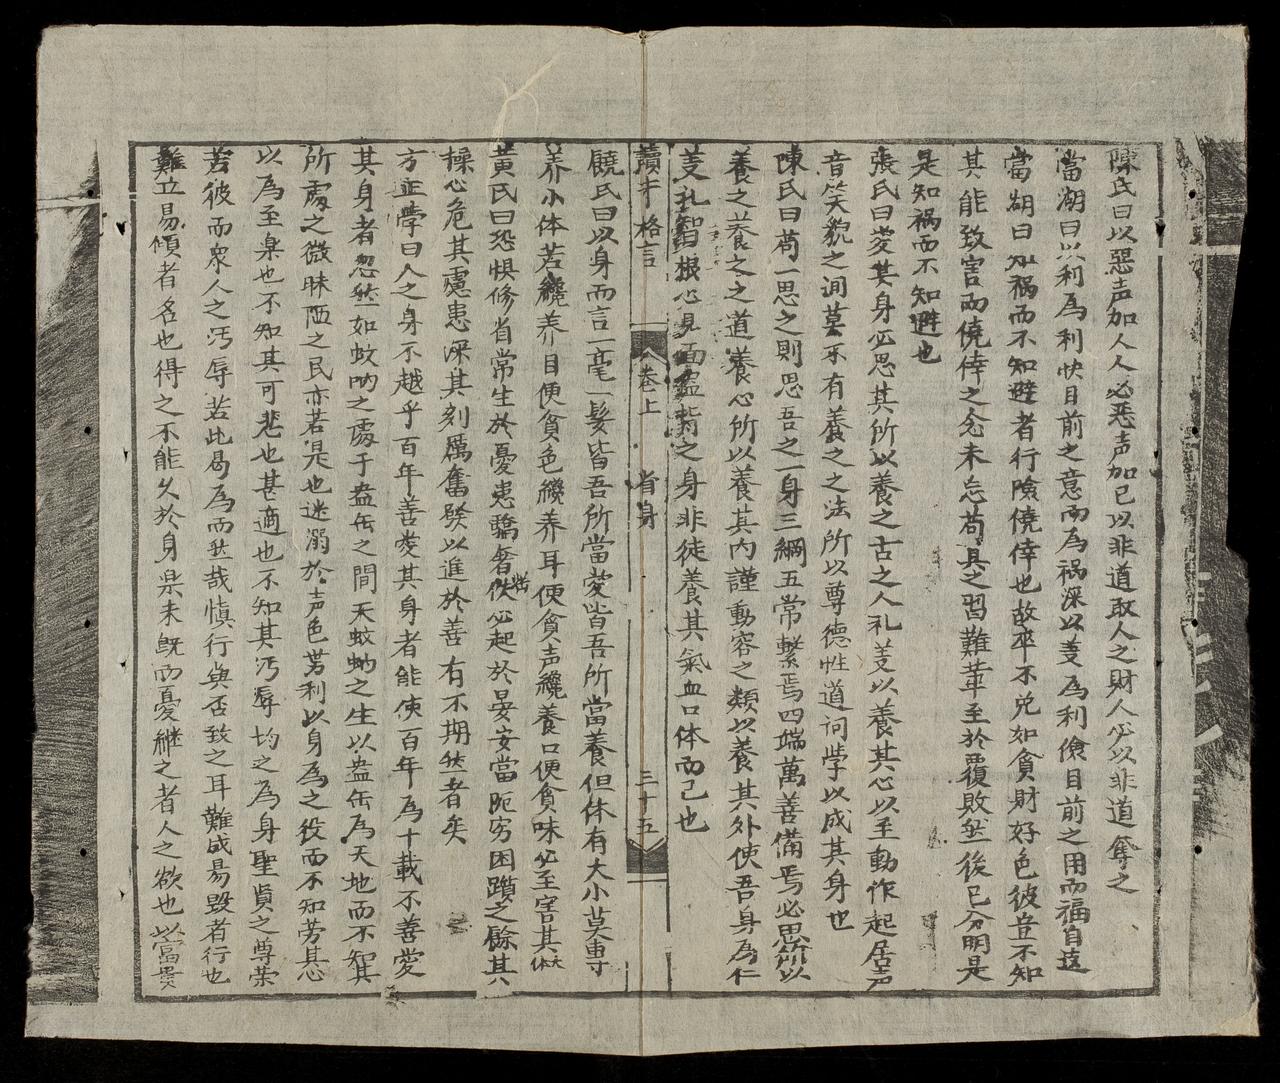 陳氏曰以惡声加人人必恶声加已以非道取人之財人必以非道奪之
當湖曰以利為利快目前之意而為祸深以義為利儉目前之用而福自遠
當湖曰知祸而不知避者行險僥倖也故卒不免如貪財好色彼豈不知
其能致害而僥倖之念未忘苟且之習難革至於覆敗然後已分明是
是知祸而不知避也
張氏曰愛其身必思其所以養之古之人礼義以養其心以至動作起居声
音笑貌之间莫不有養之之法所以尊德性道问学以成其身也
陳氏曰苟一思之則思吾之一身三綱五常繫焉四端萬善備焉必思所以
養之養之之道養心所以養其内謹動容之類以養其外使吾身為仁
義礼智根心見面盎背之身非徒養其氣血口体而已也
讀干格言 卷上 省身 三十五
饒氏曰以身而言一毫一髮皆吾所當愛皆吾所當養但体有大小莫專
养小体若纔养目便貪色纔养耳便貪声纔養口便貪味必至害其大体
黄氏曰恐惧修省常生於憂患驕奢佚必起於晏安當阨穷困躓之餘其
操心危其慮患深其刻厲奮發以進於善有不期然者矣
方正學曰人之身不越乎百年善愛其身者能使百年為千載不善愛
其身者忽然如蚊蚋之處于盎缶之間夫蚊蚋之生以盎缶為天地而不智其
所處之微昧陋之民亦若是也迷溺於声色势利以身為之役而不知劳其心
以為至楽也不知其可悲也甚適也不知其污辱均之為身聖贤之尊荣
若彼而眾人之污辱若此曷為而然哉慎行與否致之耳難成易毁者行也
難立易傾者名也得之不能久於身果未既而憂継之者人之欲也以富貴